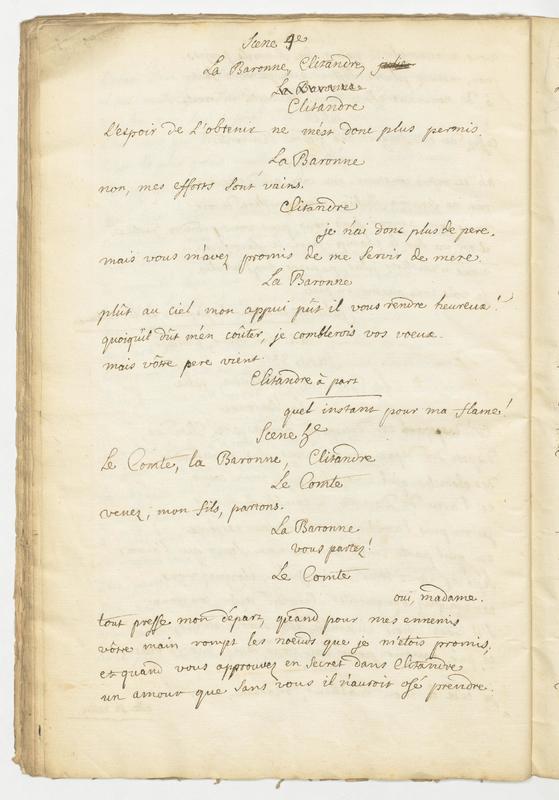 Scene 4e
La Baronne, Clitandre, julie
La Baronne
Clitandre
L'espoir de l'obtenir ne m'est donc plus permis.
La Baronne
non, mes efforts sont vains.
Clitandre
je n'ai donc plus de pere.
mais vous m'avez promis de me servir de mere.
La Baronne
plût au ciel mon appui pût il vous rendre heureux!
quoiqu'il dût m'en coûter, je comblerois vos voeux.
mais vôtre pere vient.
Clitandre à part
quel instant pour ma flame!
Scene 5e
Le Comte, la Baronne, Clitandre
Le Comte
venez, mon fils, partons.
La Baronne
vous partez!
Le Comte
oui, madame.
tout presse mon départ, quand pour mes ennemis
vôtre main rompt les noeuds que je m'étois promis,
et quand vous approuvez en secret dans Clitandre
un amour que sans vous il n'auroit osé prendre.